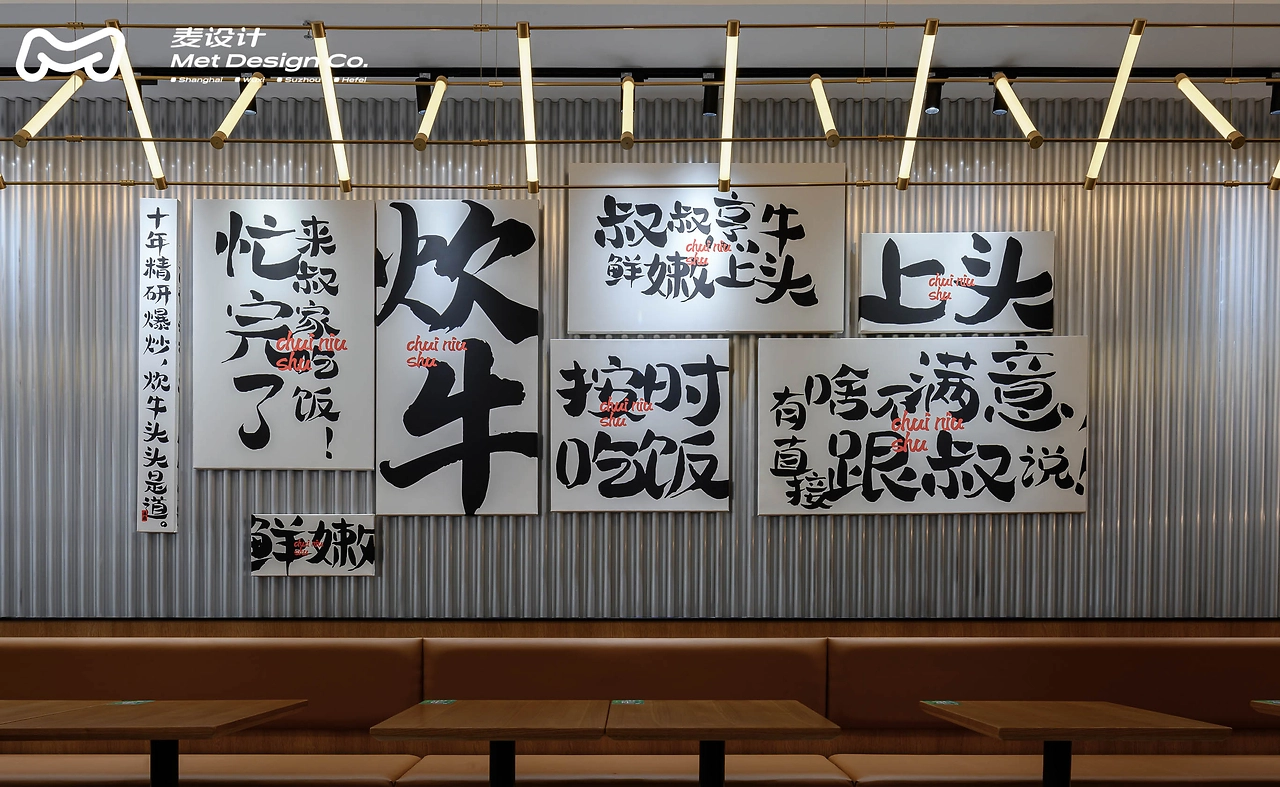 麦设计
Met Design Co.
Shanghai Wuxi Suzhou Hefei
十年精研爆炒，炊牛头头是道。
忙完了
来叔家吃饭！
chui niu
shu
炊牛
chui niu
shu
鲜嫩
chui niu
shu
叔叔烹牛
鲜嫩上头
chui niu
shu
上头
chui niu
shu
按时
吃饭
chui niu
shu
有啥不满意，
直接跟叔说！
chui niu
shu